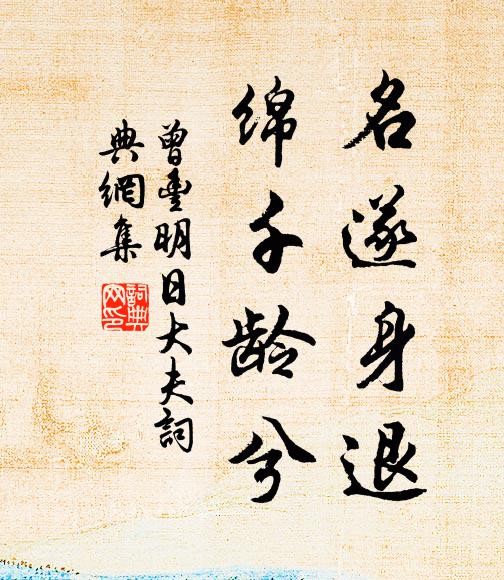 名遂身退
绵千龄兮
曾豐明日大夫詞
典網集
詞典
网印